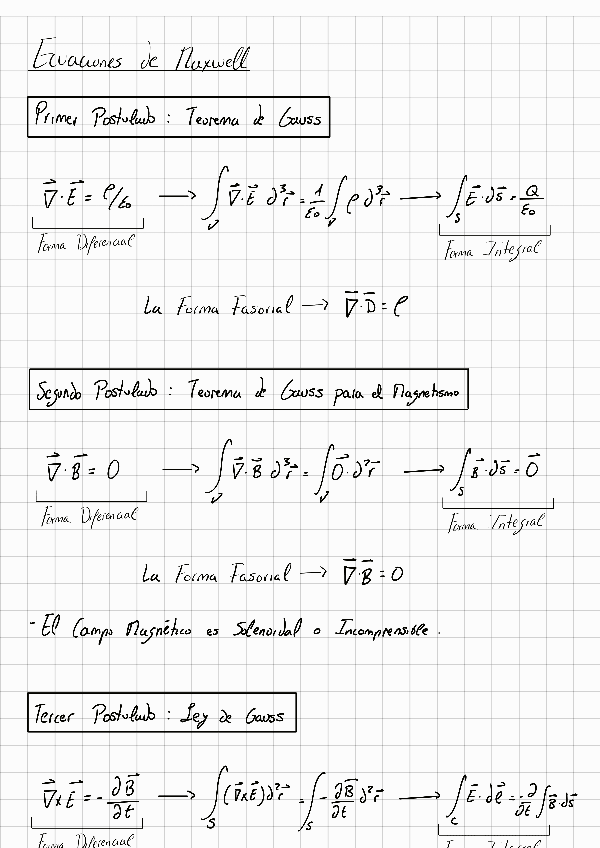 Ecuaciones de Maxwell
Primer Postulado : Teorema de Gauss
∇⃗·E⃗ = ρ/ε₀ → ∫_V ∇⃗·E⃗ ∂³r⃗ = 1/ε₀ ∫_V ρ ∂³r⃗ → ∫_S E⃗·∂s⃗ = Q/ε₀
Forma Diferencial Forma Integral
La Forma Fasorial → ∇⃗·D⃗ = ρ
Segundo Postulado : Teorema de Gauss para el Magnetismo
∇⃗·B⃗ = 0 → ∫_V ∇⃗·B⃗ ∂³r⃗ = ∫_V 0⃗·∂³r⃗ → ∫_S B⃗·∂s⃗ = 0⃗
Forma Diferencial Forma Integral
La Forma Fasorial → ∇⃗·B⃗ = 0
- El Campo Magnético es Solenoidal o Incomprensible .
Tercer Postulado : Ley de Gauss
∇⃗×E⃗ = - ∂B⃗/∂t → ∫_S (∇⃗×E⃗)∂²r⃗ = ∫_S - ∂B⃗/∂t ∂²r⃗ → ∫_C E⃗·∂ℓ⃗ = -∂/∂t ∫ B⃗·∂s⃗
Forma Diferencial Forma Integral